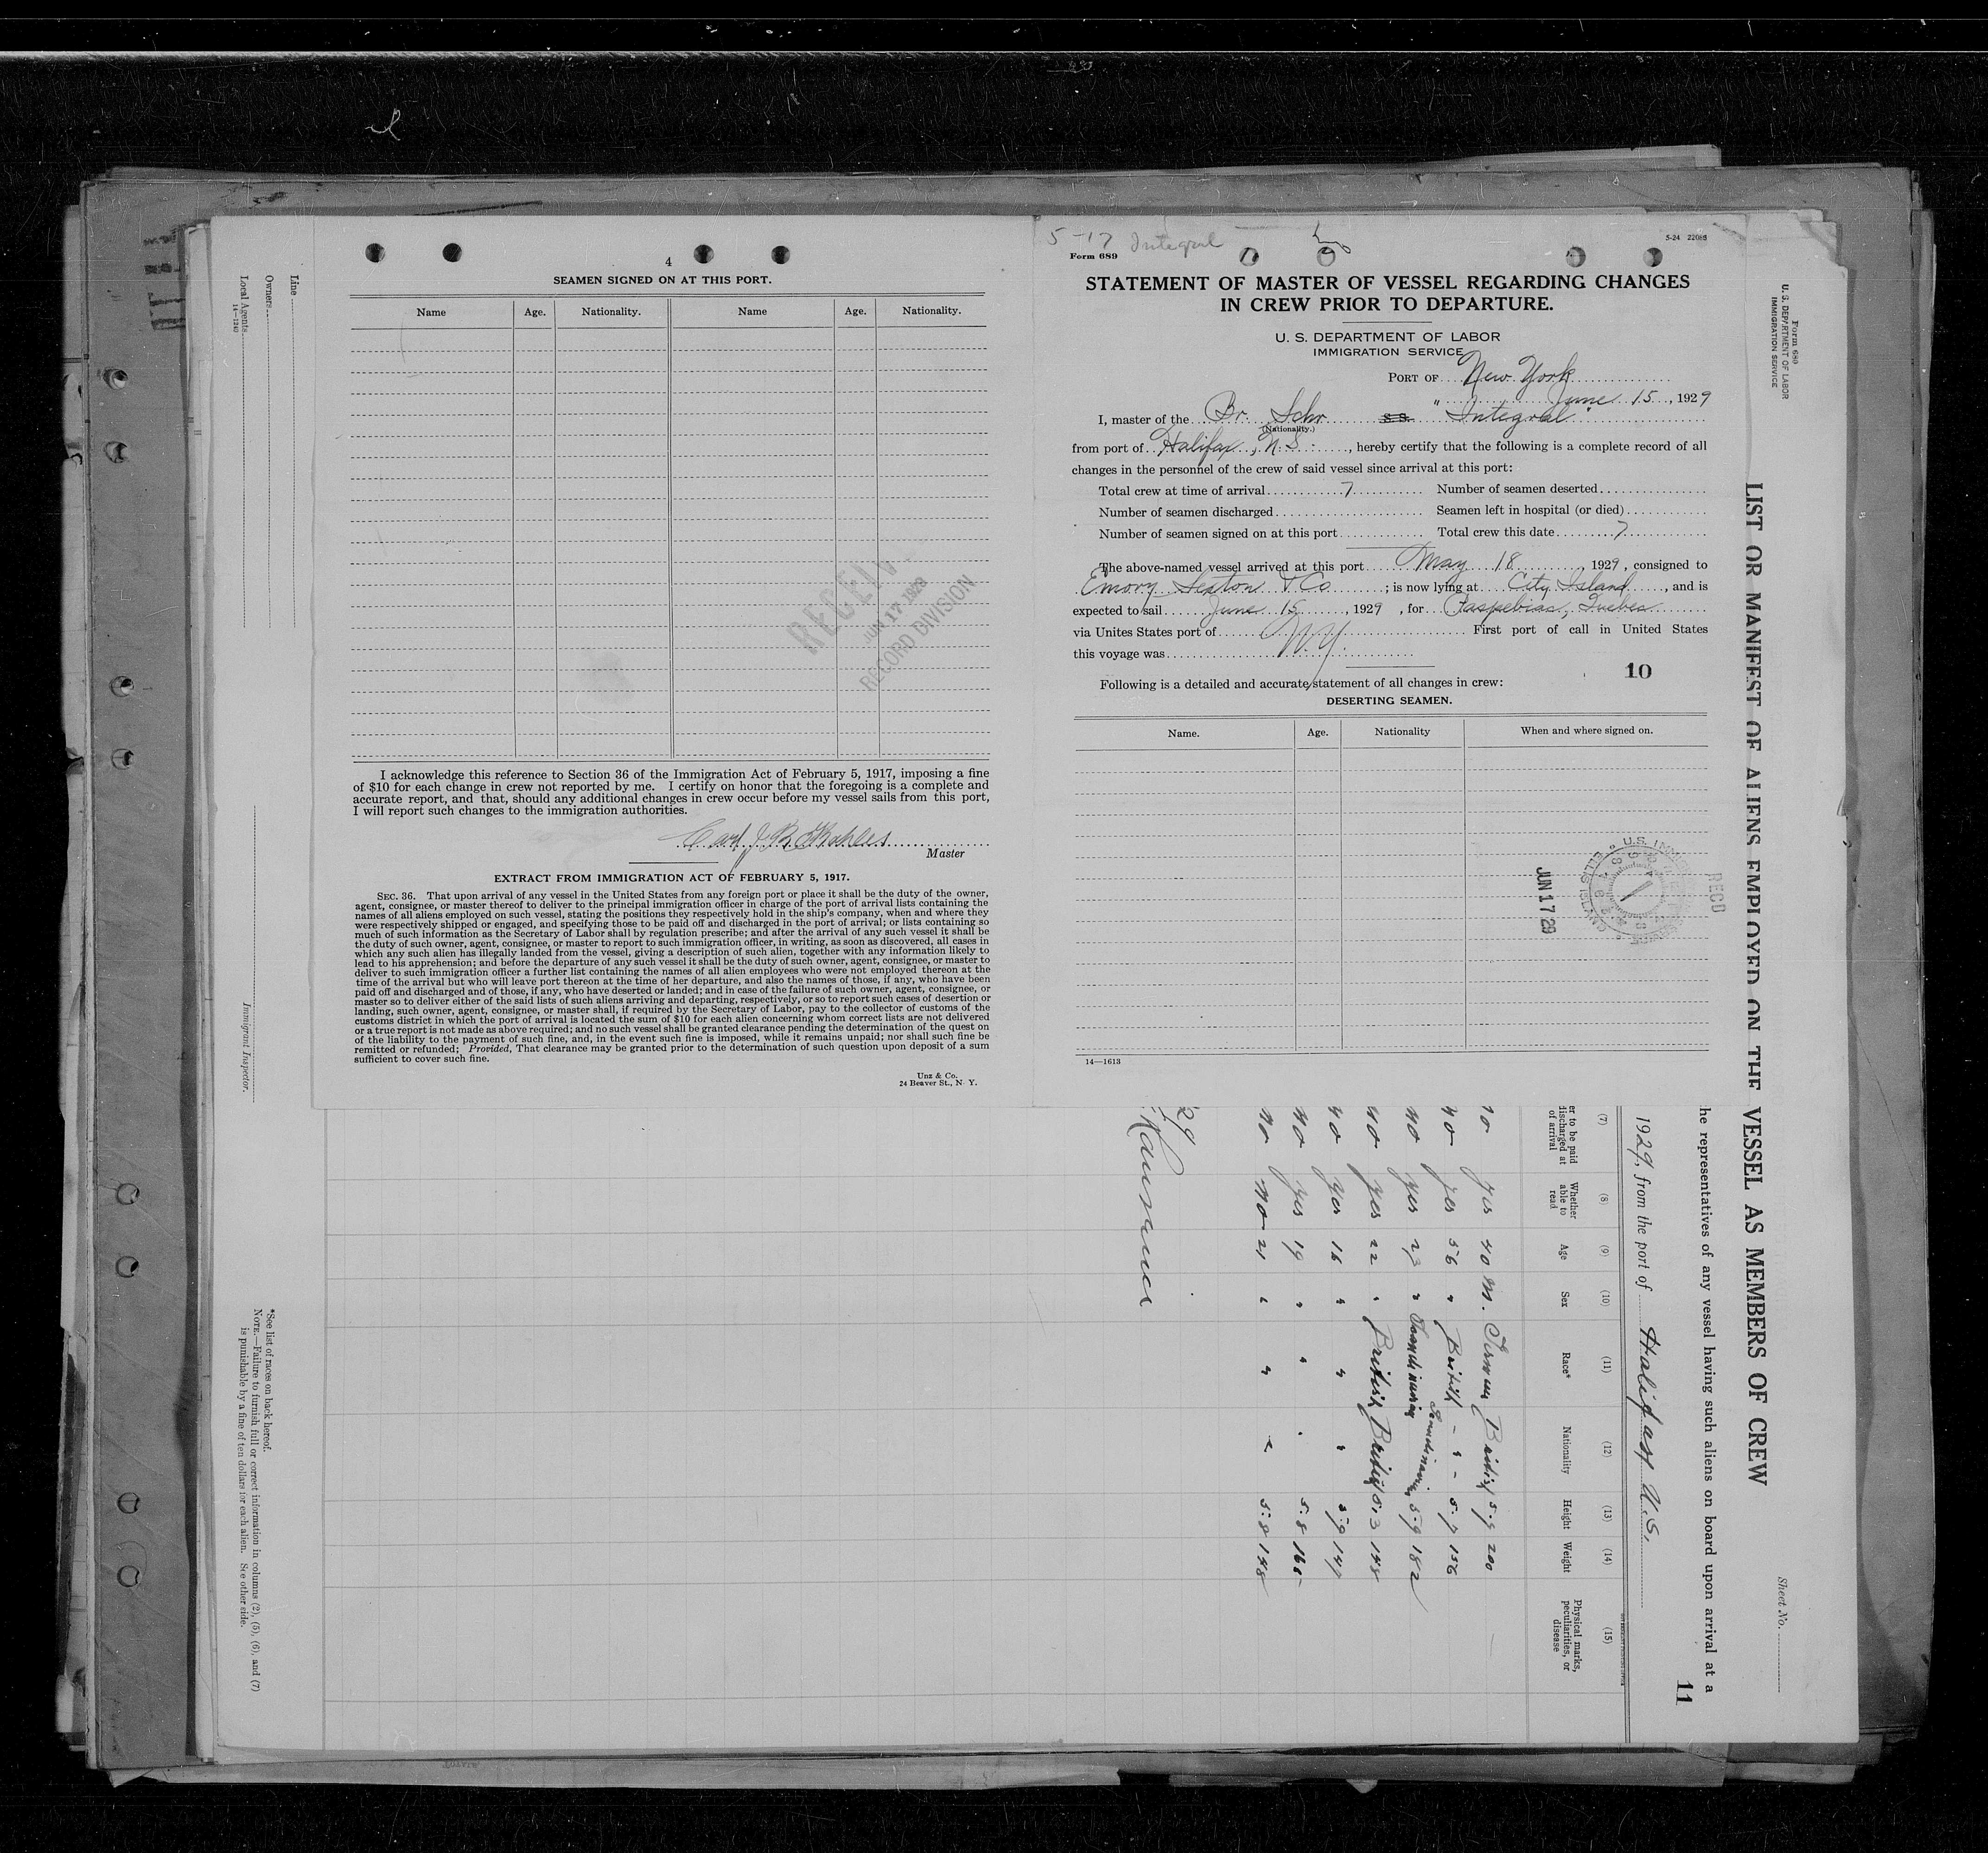 4
SEAMEN SIGNED ON AT THIS PORT.
Name Age. Nationality. Name Age. Nationality.
RECEIV
JUN 17 1929
RECORD DIVISION
I acknowledge this reference to Section 36 of the Immigration Act of February 5, 1917, imposing a fine
of $10 for each change in crew not reported by me. I certify on honor that the foregoing is a complete and
accurate report, and that, should any additional changes in crew occur before my vessel sails from this port,
I will report such changes to the immigration authorities.
Carl J. B.
Master
EXTRACT FROM IMMIGRATION ACT OF FEBRUARY 5, 1917.
SEC. 36. That upon arrival of any vessel in the United States from any foreign port or place it shall be the duty of the owner,
agent, consignee, or master thereof to deliver to the principal immigration officer in charge of the port of arrival lists containing the
names of all aliens employed on such vessel, stating the positions they respectively hold in the ship's company, when and where they
were respectively shipped or engaged, and specifying those to be paid off and discharged in the port of arrival; or lists containing so
much of such information as the Secretary of Labor shall by regulation prescribe; and after the arrival of any such vessel it shall be
the duty of such owner, agent, consignee, or master to report to such immigration officer, in writing, as soon as discovered, all cases in
which any such alien has illegally landed from the vessel, giving a description of such alien, together with any information likely to
lead to his apprehension; and before the departure of any such vessel it shall be the duty of such owner, agent, consignee, or master to
deliver to such immigration officer a further list containing the names of all alien employees who were not employed thereon at the
time of the arrival but who will leave port thereon at the time of her departure, and also the names of those, if any, who have been
paid off and discharged and of those, if any, who have deserted or landed; and in case of the failure of such owner, agent, consignee, or
master so to deliver either of the said lists of such aliens arriving and departing, respectively, or so to report such cases of desertion or
landing, such owner, agent, consignee, or master shall, if required by the Secretary of Labor, pay to the collector of customs of the
customs district in which the port of arrival is located the sum of $10 for each alien concerning whom correct lists are not delivered
or a true report is not made as above required; and no such vessel shall be granted clearance pending the determination of the quest on
of the liability to the payment of such fine, and, in the event such fine is imposed, while it remains unpaid; nor shall such fine be
remitted or refunded; Provided, That clearance may be granted prior to the determination of such question upon deposit of a sum
sufficient to cover such fine.
Unz & Co.
24 Beaver St., N. Y.
5-17 Integral
5-24 22085
Form 689
STATEMENT OF MASTER OF VESSEL REGARDING CHANGES
IN CREW PRIOR TO DEPARTURE.
U. S. DEPARTMENT OF LABOR
IMMIGRATION SERVICE
PORT OF New York
June 15, 1929
I, master of the Br. Schr S.S. "Integral"
(Nationality.)
from port of Halifax, N.S., hereby certify that the following is a complete record of all
changes in the personnel of the crew of said vessel since arrival at this port:
Total crew at time of arrival 7 Number of seamen deserted
Number of seamen discharged Seamen left in hospital (or died)
Number of seamen signed on at this port Total crew this date 7
The above-named vessel arrived at this port May 18, 1929, consigned to
Emory Sexton & Co; is now lying at City Island, and is
expected to sail June 15, 1929, for Paspebiac, Quebec
via Unites States port of First port of call in United States
this voyage was N.Y.
10
Following is a detailed and accurate statement of all changes in crew:
DESERTING SEAMEN.
Name. Age. Nationality When and where signed on.
JUN 17 29
RECD
14—1613
Form 680
U. S. DEPARTMENT OF LABOR
IMMIGRATION SERVICE
Sheet No.
LIST OR MANIFEST OF ALIENS EMPLOYED ON THE VESSEL AS MEMBERS OF CREW
he representatives of any vessel having such aliens on board upon arrival at a
11
1929, from the port of Halifax N.S.
(7) (8) (9) (10) (11) (12) (13) (14) (15)
er to be paid discharged at of arrival Whether able to read Age Sex Race* Nationality Height Weight Physical marks, peculiarities, or disease
no yes 40 M. German British 5.9 200
no yes 56 " British - " - 5.7 156
no yes 23 " Scandinavian Scandinavian 5.9 182
no yes 22 " British British 5.3 148
no yes 16 " " " 5.9 147
no yes 19 " " " 5.8 165
no no 21 " " " 5.8 148
29
Line
Owners
Local Agents
14—1240
Immigrant Inspector.
*See list of races on back hereof.
NOTE.—Failure to furnish full or correct information in columns (2), (5), (6), and (7)
is punishable by a fine of ten dollars for each alien. See other side.